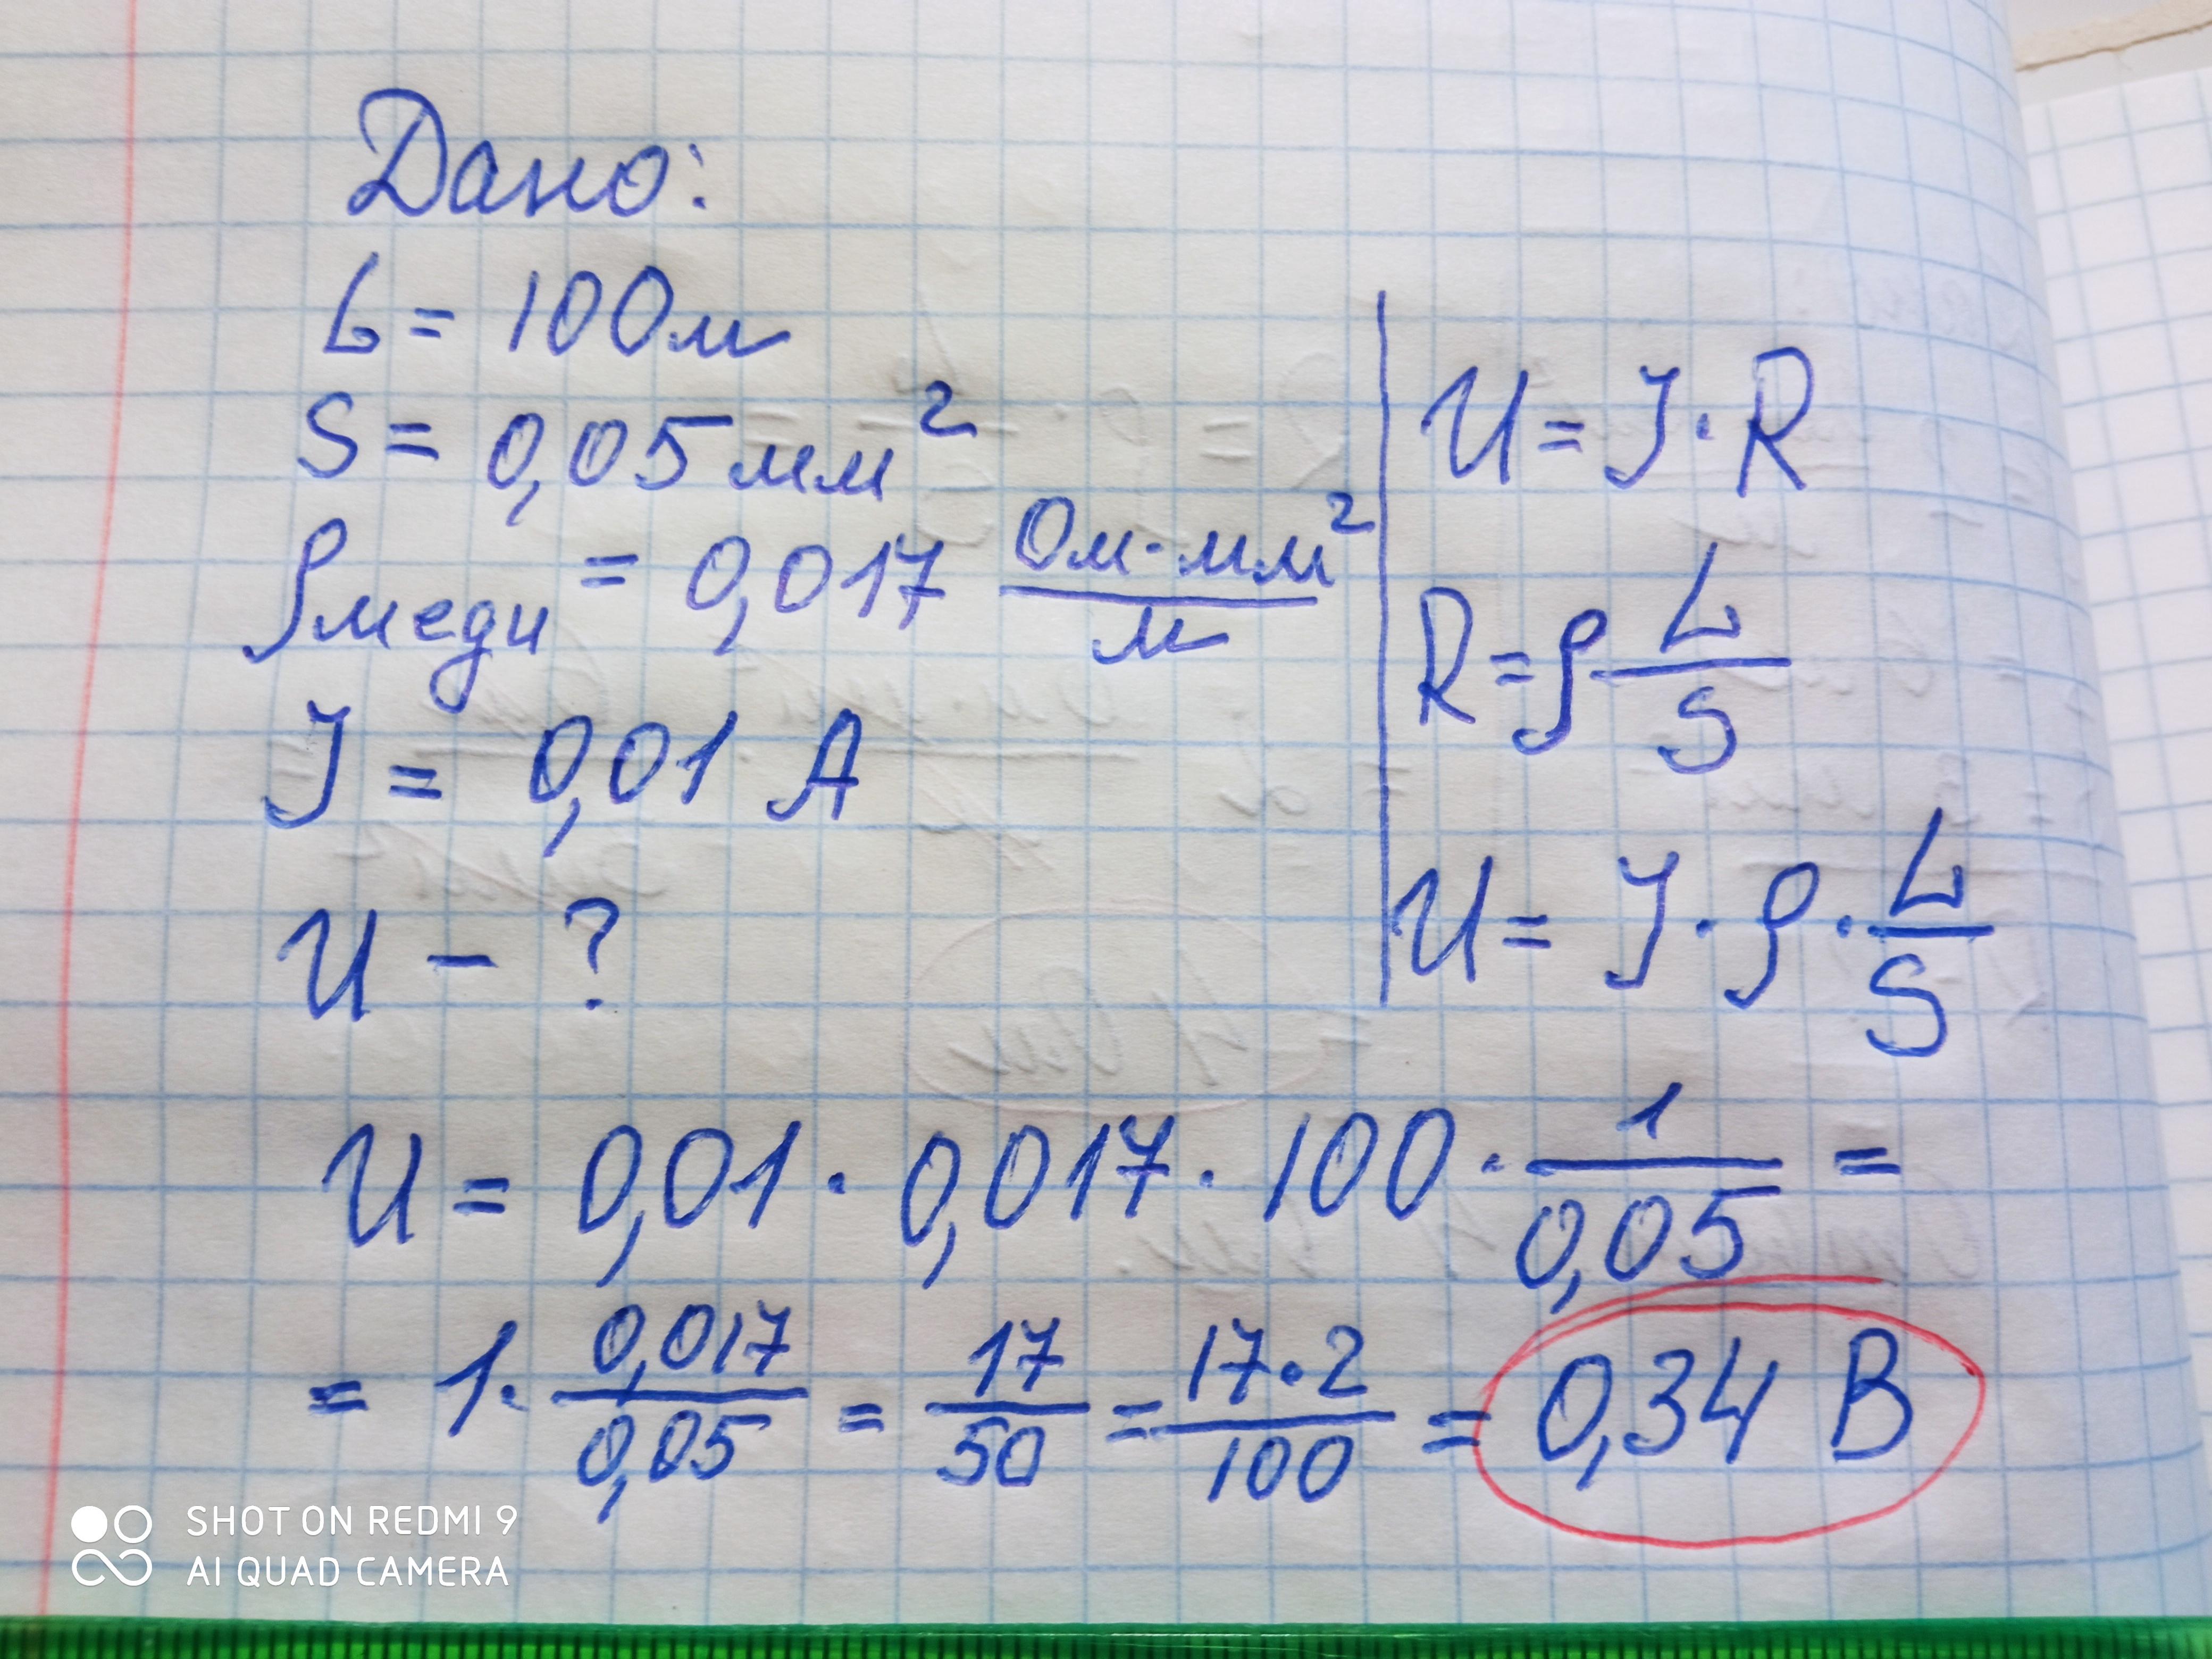 Дано:
L = 100 м
S = 0,05 мм²
ρмеди = 0,017 Ом·мм²/м
J = 0,01 А
U - ?
U = J · R
R = ρ L/S
U = J · ρ · L/S
U = 0,01 · 0,017 · 100 · 1/0,05 =
= 1 · 0,017/0,05 = 17/50 = 17·2/100 = 0,34 В
SHOT ON REDMI 9
AI QUAD CAMERA